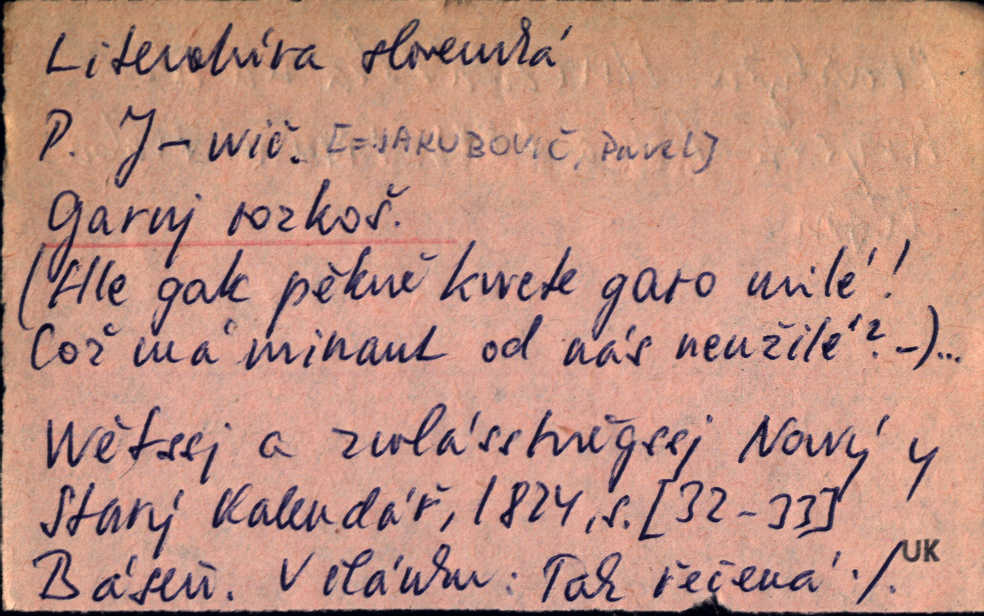 Literatúra slovenská
P. J-wič. [=JAKUBOVIČ, Pavel]
Garnj rozkoš.
(Hle gak pěkně kwete garo milé!
Což má minaut od nás neužilé? -)...
Wětssj a zwlásstněgssj Nowý y
Starý Kalendář, 1824, s. [32-33]
Báseň. V článku: Tak řečená ./.
UK